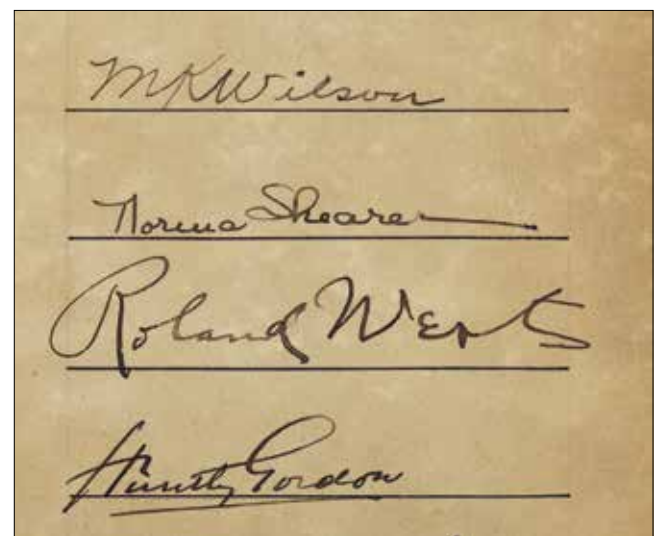 MKWilson
Norma Shearer
Roland West
Huntly Gordon